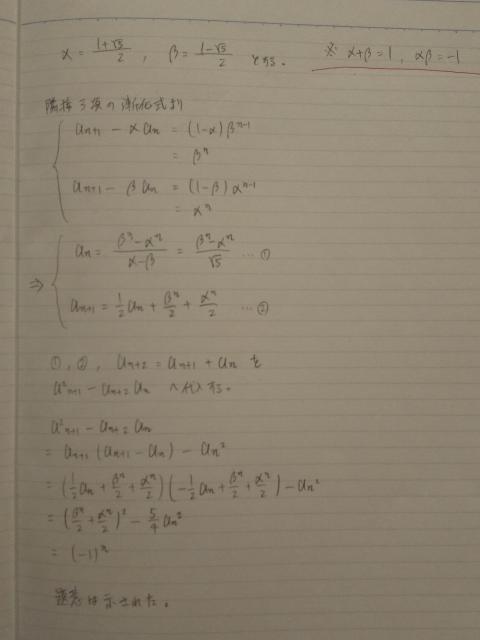 α = (1+√5)/2 , β = (1-√5)/2 とする。 ※ α+β=1, αβ=-1
隣接3項の漸化式より
a_{n+1} - αa_n = (1-α)β^{n-1}
= β^n
a_{n+1} - βa_n = (1-β)α^{n-1}
= α^n
⇒ a_n = (β^n-α^n)/(α-β) = (β^n-α^n)/√5 … ①
a_{n+1} = 1/2 a_n + β^n/2 + α^n/2 … ②
①, ②, a_{n+2} = a_{n+1} + a_n を
a²_{n+1} - a_{n+2} a_n へ代入する。
a²_{n+1} - a_{n+2} a_n
= a_{n+1} (a_{n+1} - a_n) - a_n²
= (1/2 a_n + β^n/2 + α^n/2)(-1/2 a_n + β^n/2 + α^n/2) - a_n²
= (β^n/2 + α^n/2)² - 5/4 a_n²
= (-1)^n
題意は示された。